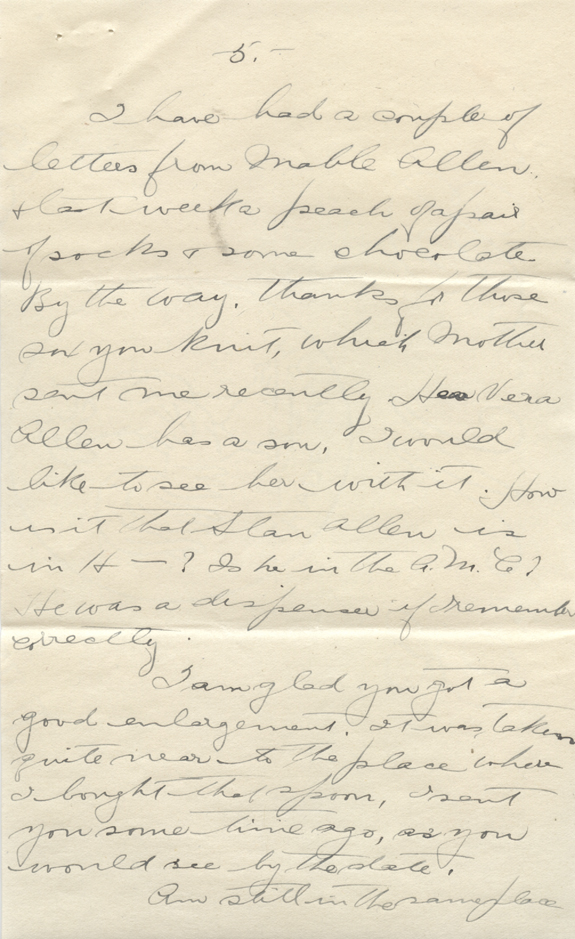 5.-
I have had a couple of
letters from Mable Allen,
& last week a peach of a pair
of socks & some chocolate
By the way, thanks for those
sox you knit, which Mother
sent me recently. Vera
Allen has a son, I would
like to see her with it. How
is it that Stan Allen is
in H—? Is he in the A.M.C?
He was a dispenser if I remember
correctly.
I am glad you got a
good enlargement. It was taken
quite near to the place where
I bought that spoon, I sent
you some time ago, as you
would see by the date.
Am still in the same place